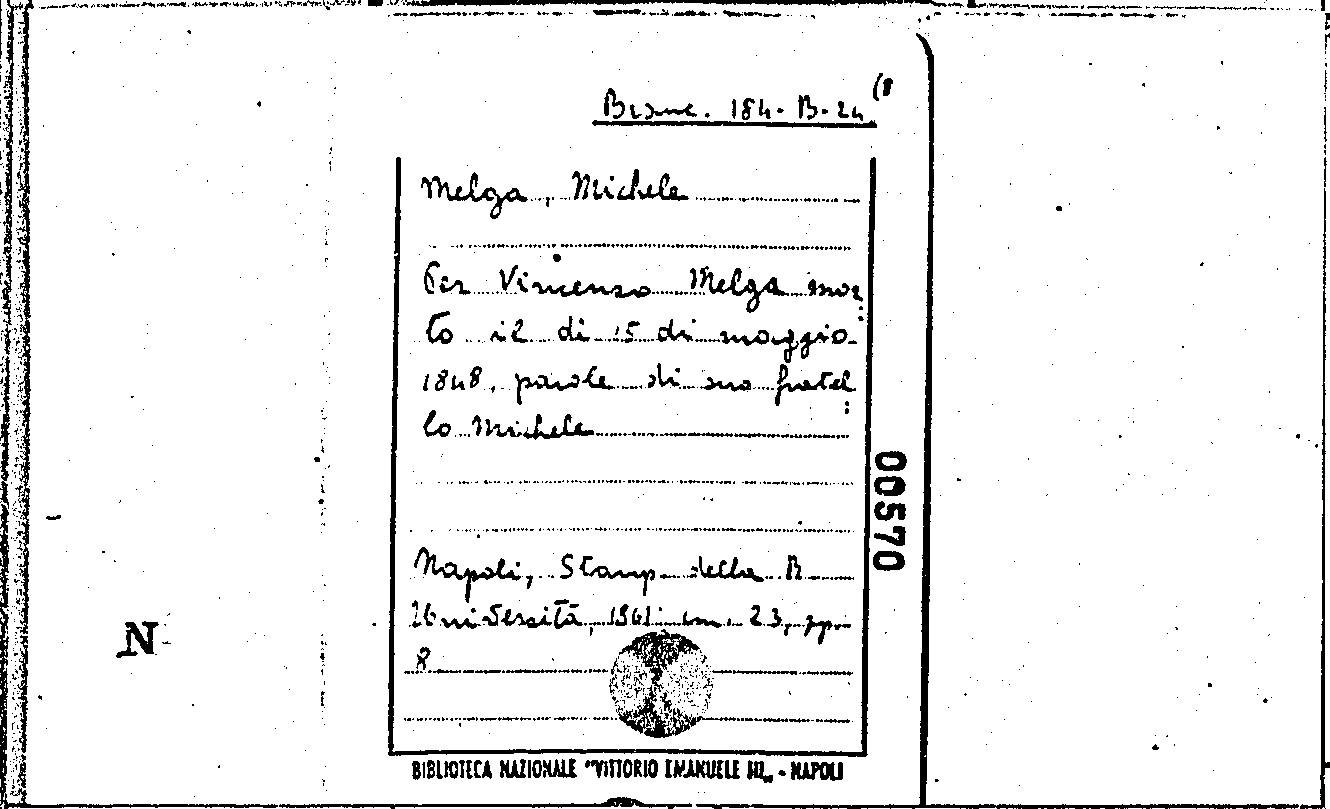 Branc. 184. B. 24 (8
Melga, Michele
Per Vincenzo Melga mor
to il dì 15 di maggio
1848, parole di suo fratel
lo Michele
00570
Napoli, Stamp. della R.
Università, 1861. cm. 23, pp.
8
N
BIBLIOTECA NAZIONALE "VITTORIO EMANUELE III„ - NAPOLI